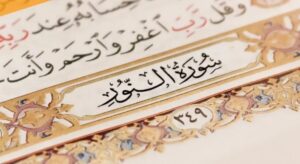 حسابه عند رب
وقل رب اغفر وارحم وأنت
سورة النور
٣٤٩